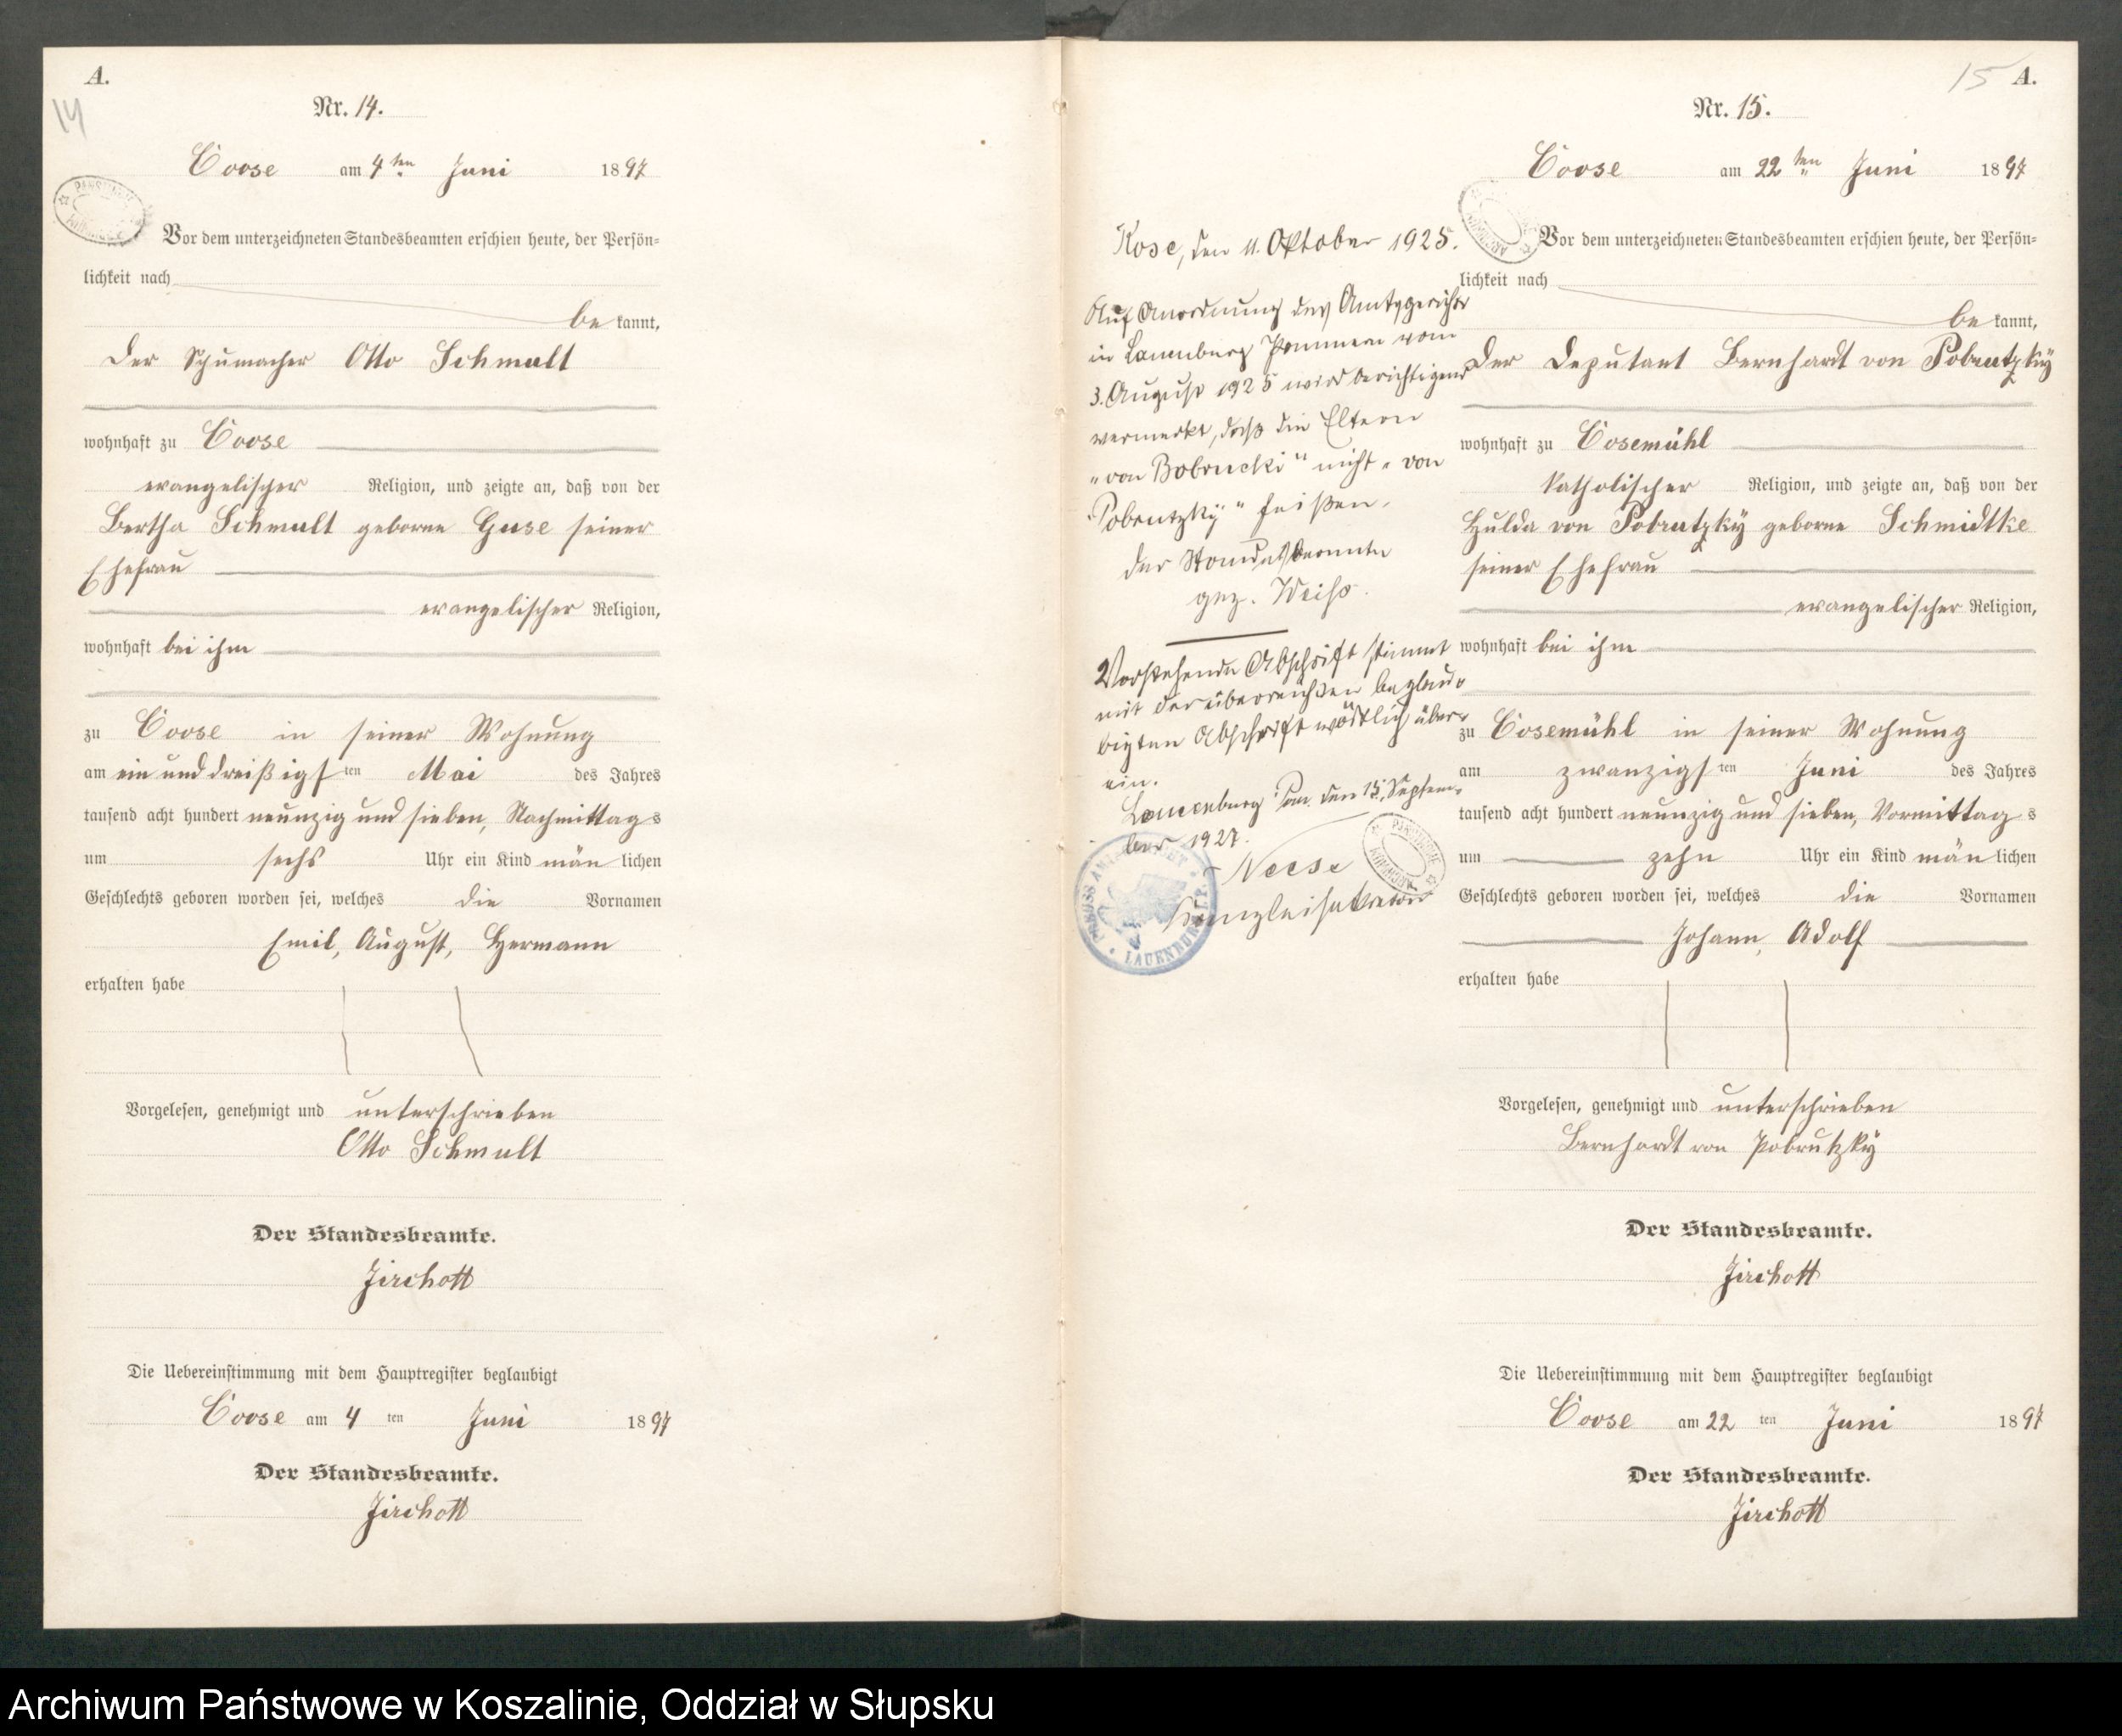 A.
14
Nr. 14.
Coose am 4ten Juni 1897
Vor dem unterzeichneten Standesbeamten erschien heute, der Persön=
lichkeit nach
be kannt,
der Schumacher Otto Schmalt
wohnhaft zu Coose
evangelischer Religion, und zeigte an, daß von der
Bertha Schmalt geborne Guse seiner
Ehefrau
evangelischer Religion,
wohnhaft bei ihm
zu Coose in seiner Wohnung
am ein und dreißigsten Mai des Jahres
tausend acht hundert neunzig und sieben, Nachmittags
um sechs Uhr ein Kind männlichen
Geschlechts geboren worden sei, welches die Vornamen
Emil, August, Hermann
erhalten habe
Vorgelesen, genehmigt und unterschrieben
Otto Schmalt
Der Standesbeamte.
Jirchott
Die Uebereinstimmung mit dem Hauptregister beglaubigt
Coose am 4 ten Juni 1897
Der Standesbeamte.
Jirchott
15 A.
Nr. 15.
Coose am 22ten Juni 1897
Vor dem unterzeichneten Standesbeamten erschien heute, der Persön=
lichkeit nach
be kannt,
der Deputant Bernhardt von Pobrutzky
wohnhaft zu Cosemühl
katholischer Religion, und zeigte an, daß von der
Hulda von Pobrutzky geborne Schmidtke
seiner Ehefrau
evangelischer Religion,
wohnhaft bei ihm
zu Cosemühl in seiner Wohnung
am zwanzigsten Juni des Jahres
tausend acht hundert neunzig und sieben, Vormittags
um zehn Uhr ein Kind männlichen
Geschlechts geboren worden sei, welches die Vornamen
Johann, Adolf
erhalten habe
Vorgelesen, genehmigt und unterschrieben
Bernhardt von Pobrutzky
Der Standesbeamte.
Jirchott
Die Uebereinstimmung mit dem Hauptregister beglaubigt
Coose am 22 ten Juni 1897
Der Standesbeamte.
Jirchott
Kose, den 11. Oktober 1925.
Auf Anordnung des Amtsgerichts
in Lauenburg Pommern vom
3. August 1925 wird berichtigend
vermerkt, daß die Eltern
"von Bobrucki" nicht "von
Pobrutzky" heißen.
Der Standesbeamte
gez. Weiß.
Vorstehende Abschrift stimmt
mit der überreichten beglau=
bigten Abschrift wörtlich über=
ein.
Lauenburg Pom. den 15. Septem=
ber 1927.
Neese
Kanzleisekretär
LAUENBURG
Archiwum Państwowe w Koszalinie, Oddział w Słupsku